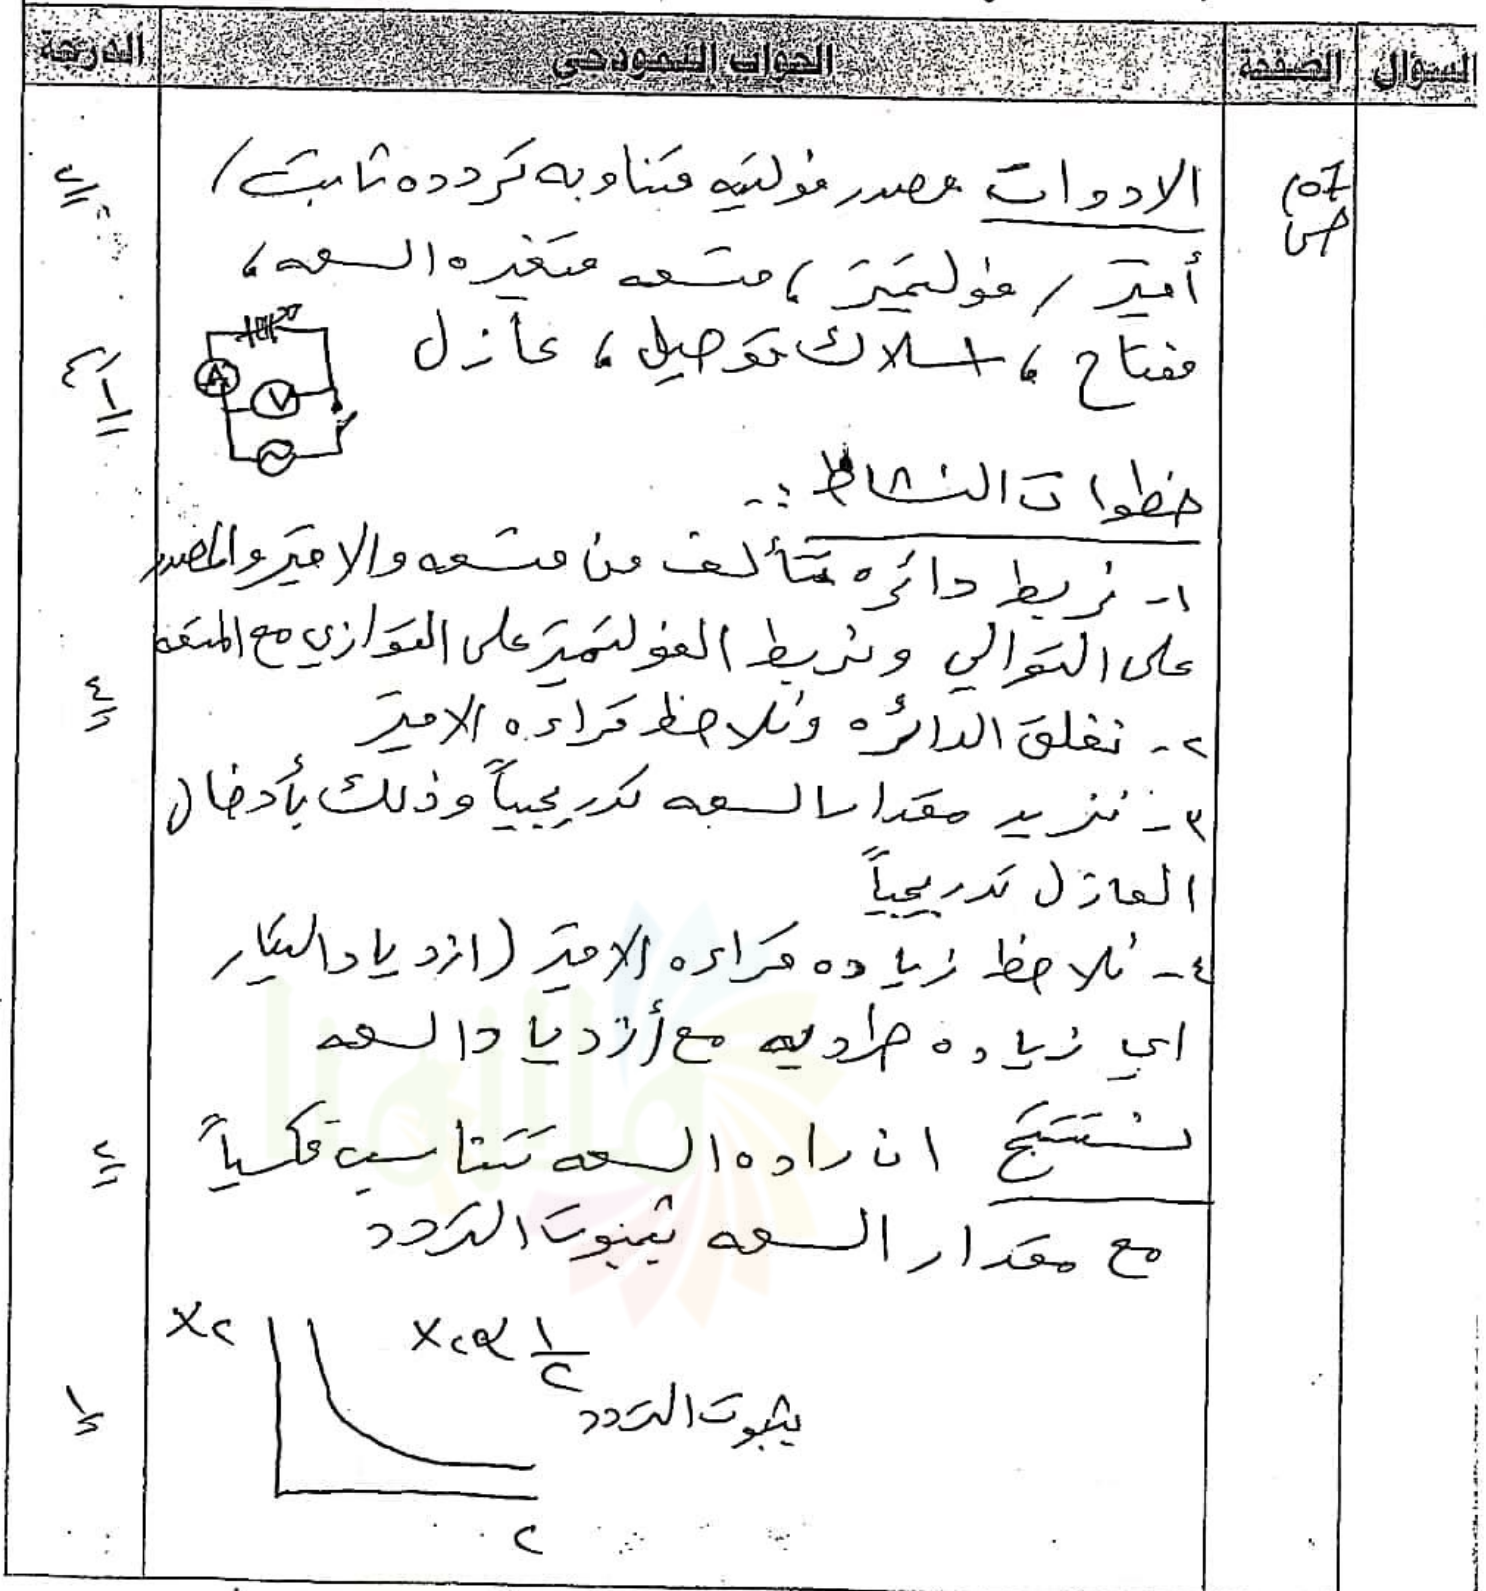 السؤال الصفحة الجواب النموذجي الدرجة
الادوات مصدر فولتيه متناوبه تردده ثابت /
أميتر / فولتميتر ، متسعه متغيره السعه ،
مفتاح ، اسلاك توصيل ، عازل
A
V
خطوات النشاط :-
١- نربط دائره تتألف من متسعه والاميتر والمصدر
على التوالي ونربط الفولتميتر على التوازي مع المتسعه
٢- نغلق الدائره ونلاحظ قراءه الاميتر
٣- نزيد مقدار السعه تدريجياً وذلك بأدخال
العازل تدريجياً
٤- نلاحظ زياده قراءه الاميتر (ازدياد التيار
اي زياده طرديه مع أزدياد السعه
نستنتج ان راده السعه تتناسب عكسياً
مع مقدار السعه بثبوت التردد
Xc
Xc α ١/C
بثبوت التردد
C